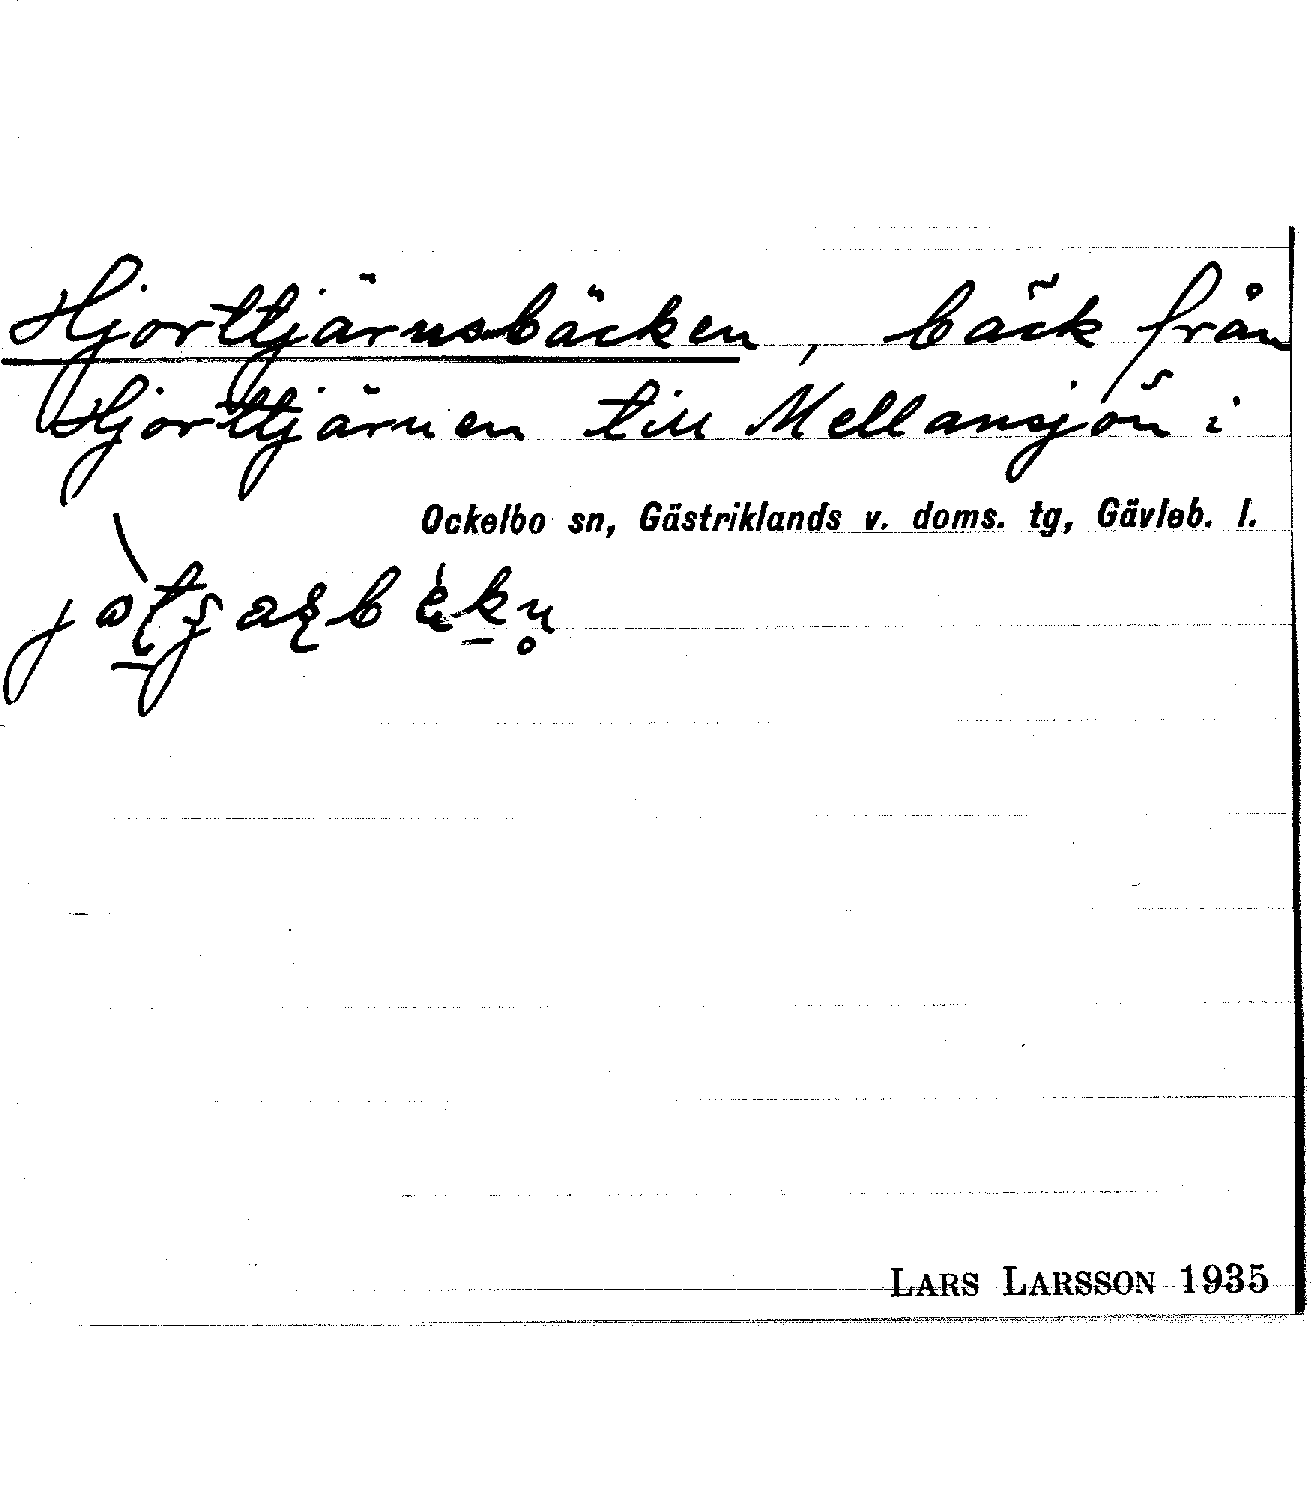 Hjorttjärnsbäcken, bäck från
Hjorttjärnen till Mellansjön i
Ockelbo sn, Gästriklands v. doms. tg, Gävleb. l.
LARS LARSSON 1935